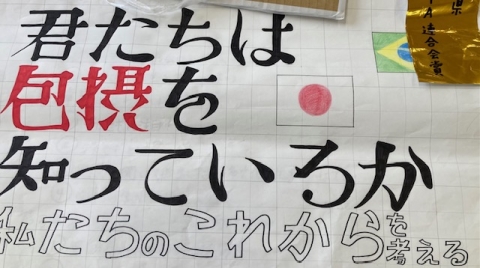 君たちは
包摂を
知っているか
私たちのこれからを考える
県
TA連合会賞